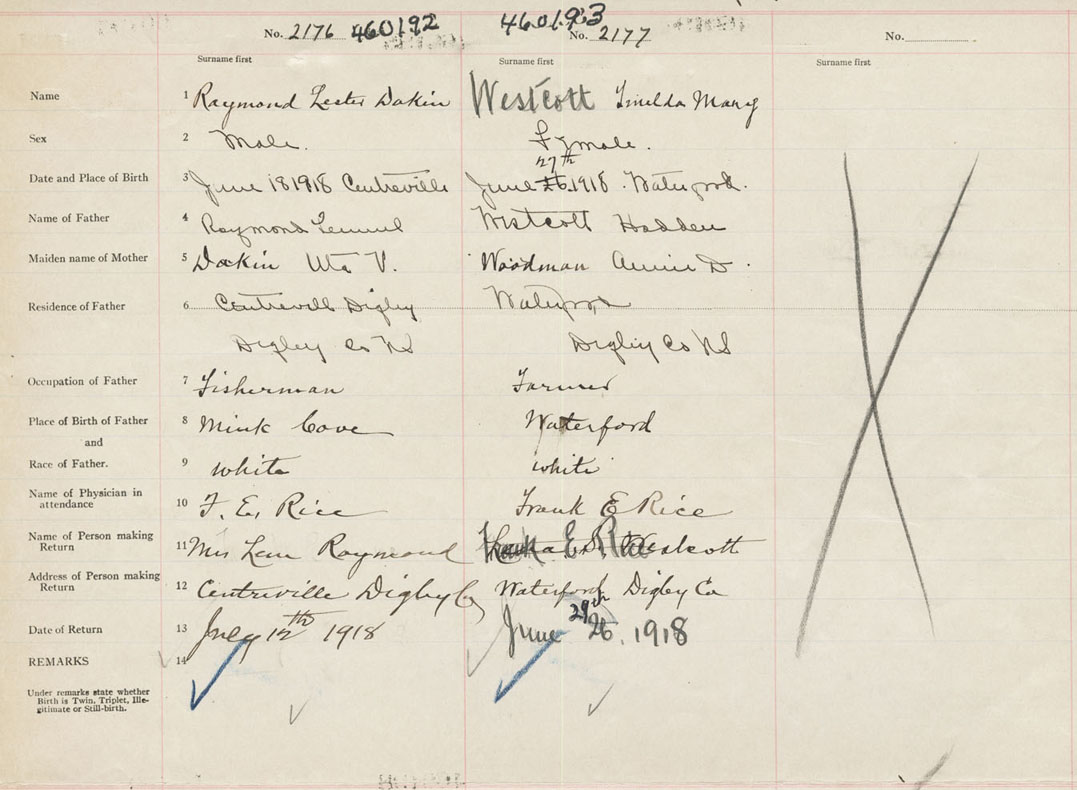 No. 2176 460192 460193 No. 2177 No.
Surname first Surname first Surname first
Name 1 Raymond Lester Dakin Westcott Imelda Mary
Sex 2 Male. Female.
27th
Date and Place of Birth 3 June 18 1918 Centreville June 26 1918 Waterford.
Name of Father 4 Raymond Lemuel Westcott Hadden
Maiden name of Mother 5 Dakin Uta V. Woodman Annie D.
Residence of Father 6 Centrevill Digby Waterford
Digby Co NS Digby Co NS
Occupation of Father 7 Fisherman Farmer
Place of Birth of Father 8 Mink Cove Waterford
and
Race of Father. 9 white white
Name of Physician in
attendance 10 F. E. Rice Frank E Rice
Name of Person making
Return 11 Mrs Lem Raymond Frank E. Rice Westcott
Address of Person making
Return 12 Centreville Digby Co Waterford Digby Co
29th
Date of Return 13 July 12th 1918 June 26, 1918
REMARKS 14
Under remarks state whether
Birth is Twin, Triplet, Ille-
gitimate or Still-birth.